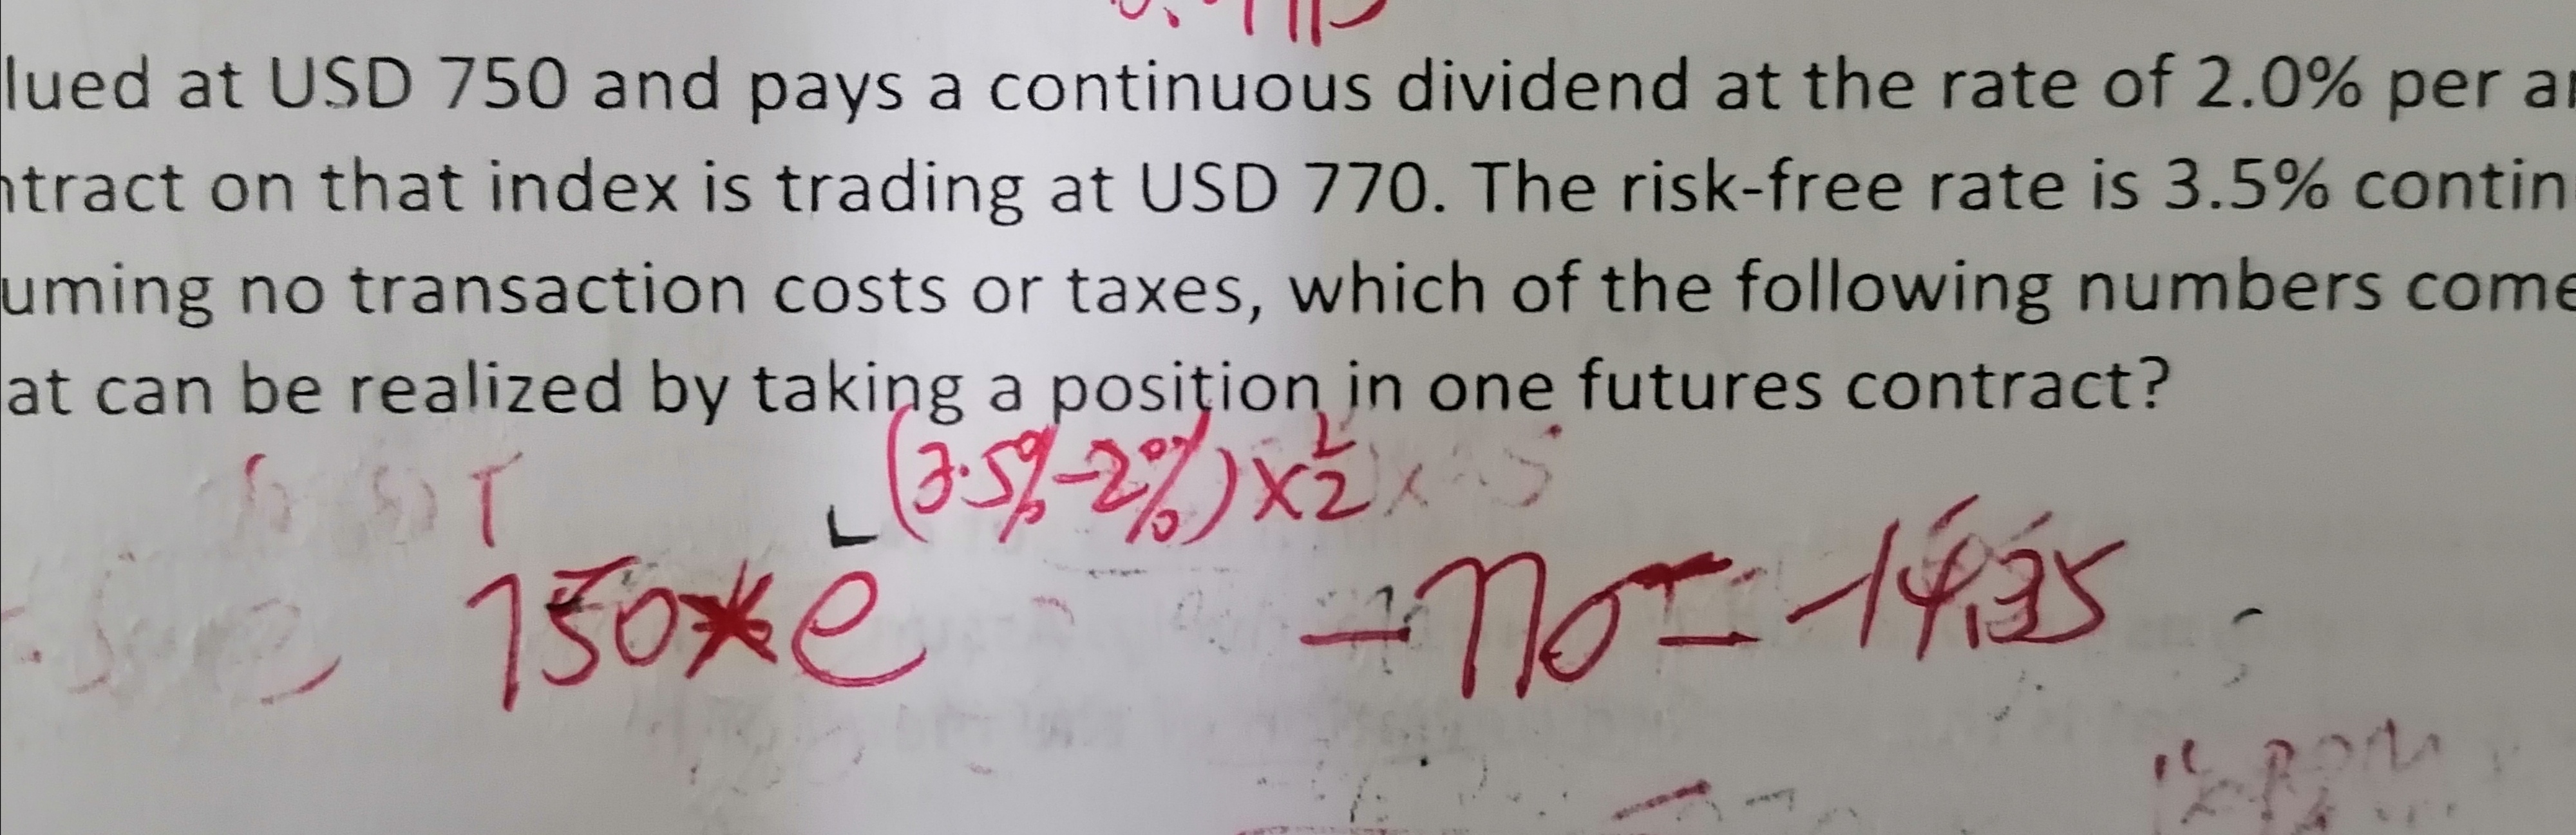 lued at USD 750 and pays a continuous dividend at the rate of 2.0% per a
tract on that index is trading at USD 770. The risk-free rate is 3.5% contin
uming no transaction costs or taxes, which of the following numbers come
at can be realized by taking a position in one futures contract?
(3.5%-2%)×1/2
750*e -770=-14.35